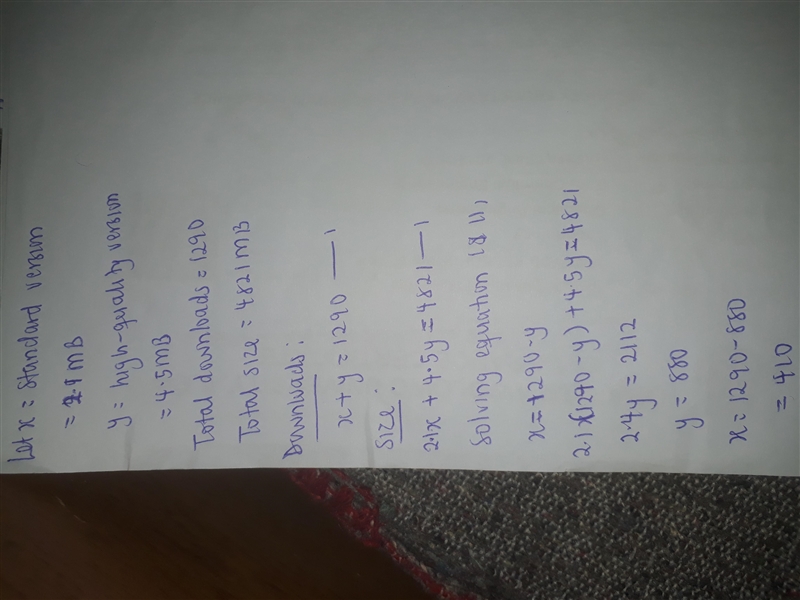 Let x = Standard version
= 2.1 MB
y = high-quality version
= 4.5MB
Total downloads = 1290
Total size = 4821MB
Downloads:
x + y = 1290 — 1
Size:
2.1x + 4.5y = 4821 — 1
Solving equation 1 & 11,
x = 1290 - y
2.1(1290 - y) + 4.5y = 4821
2.4y = 2112
y = 880
x = 1290 - 880
= 410